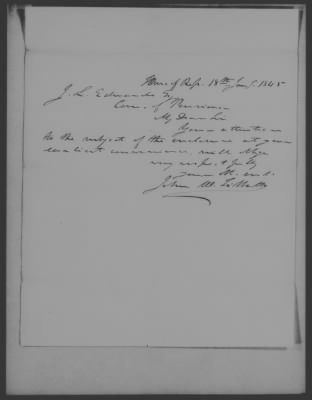 House of Rep. 18th Jany. 1845
J. L. Edwards Esq
Com. of Pensions
My Dear Sir
Your attention
to the subject of the enclosed at your
earliest convenience, will oblige
very respectfully
Your Ob. serv.
John W.